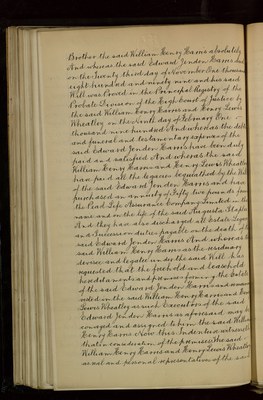 Brother the said William Henry Harris absolutely
And whereas the said Edward Jenden Harris died
on the Twenty third day of November One thousand
eight hundred and ninety nine and his said
Will was Proved in the Principal Registry of the
Probate Division of the High Court of Justice by
the said William Henry Harris and Henry Lewis
Wheatley on the Ninth day of February One
thousand nine hundred And whereas the debts
and funeral and testamentary expenses of the
said Edward Jenden Harris have been duly
paid and satisfied And whereas the said
William Henry Harris and Henry Lewis Wheatley
have paid all the legacies bequeathed by the Will
of the said Edward Jenden Harris and have
purchased an annuity of Fifty two pounds from
the Pearl Life Assurance Company Limited in the
name and on the life of the said Augusta Staples
And they have also discharged all Estate Legacy
and Succession duties payable on the death of the
said Edward Jenden Harris And whereas the
said William Henry Harris as the residuary
devisee and legatee under the said Will has
requested that the freehold and leasehold
hereditaments and premises forming the Estate
of the said Edward Jenden Harris and now
vested in the said William Henry Harris and Henry
Lewis Wheatley as such Executors of the said
Edward Jenden Harris as aforesaid may be
conveyed and assigned to him the said William
Henry Harris Now this Indenture witnesseth
that in consideration of the premises the said
William Henry Harris and Henry Lewis Wheatley
as and personal representatives of the said